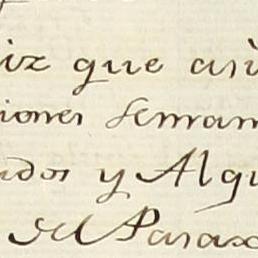 iz que asi
siones semam
ados y Algu
del Parax